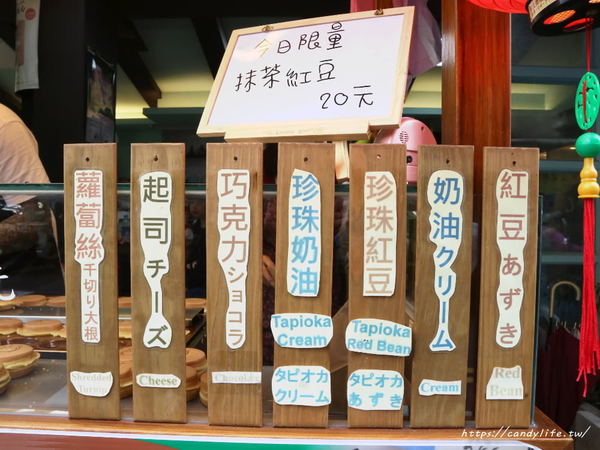 今日限量
抹茶紅豆
20元
蘿蔔絲
千切り大根
Shredded
Turnip
起司
チーズ
Cheese
巧克力
ショコラ
Chocolate
珍珠奶油
Tapioka
Cream
タピオカ
クリーム
珍珠紅豆
Tapioka
Red Bean
タピオカ
あずき
奶油
クリーム
Cream
紅豆
あずき
Red
Bean
https://candylife.tw/